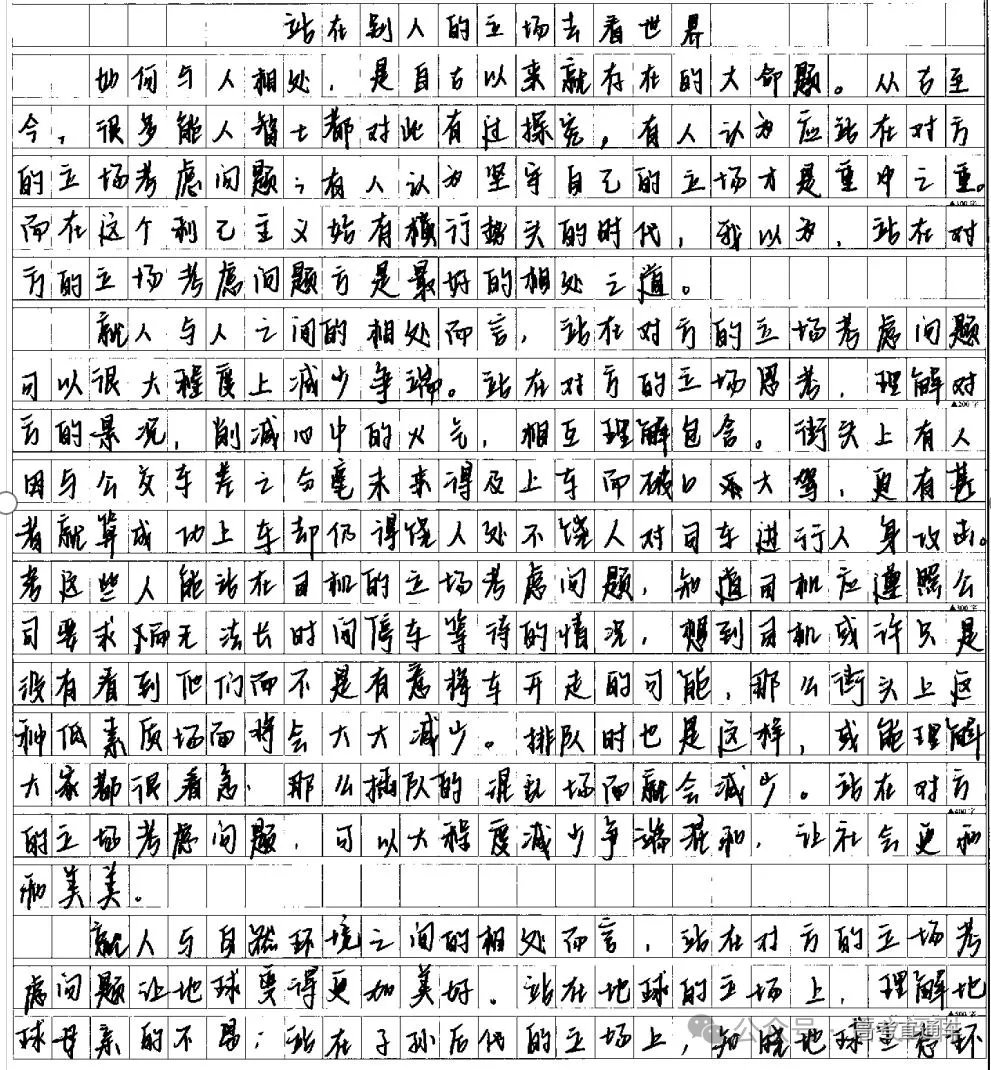 站在别人的立场去看世界
如何与人相处，是自古以来就存在的大命题。从古至
今，很多能人智士都对此有过探究，有人认为应站在对方
的立场考虑问题；有人认为坚守自己的立场才是重中之重。
▲100字
而在这个利己主义始有横行势头的时代，我以为，站在对
方的立场考虑问题方是最好的相处之道。
就人与人之间的相处而言，站在对方的立场考虑问题
可以很大程度上减少争端。站在对方的立场思考，理解对
▲200字
方的景况，削减心中的火气，相互理解包含。街头上有人
因与公交车差之分毫未来得及上车而破口大骂，更有甚
者就算成功上车却仍得饶人处不饶人对司车进行人身攻击。
考这些人能站在司机的立场考虑问题，知道司机应遵照公
▲300字
司要求而无法长时间停车等待的情况，想到司机或许只是
没有看到他们而不是有意将车开走的可能，那么街头上这
种低素质场面将会大大减少。排队时也是这样，或能理解
大家都很着急，那么插队的混乱场面就会减少。站在对方
▲400字
的立场考虑问题，可以大程度减少争端混和，让社会更和
和美美。
就人与自然环境之间的相处而言，站在对方的立场考
虑问题让地球变得更加美好。站在地球的立场上，理解地
球母亲的不易；站在子孙后代的立场上，知晓地球生态环
▲500字
公众号·管教直通车